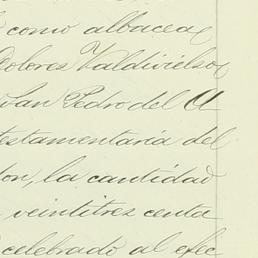 como albacea
Dolores Valdivielso
San Pedro del A
testamentaria del
don, la cantidad
veintitres centa
celebrado al efec